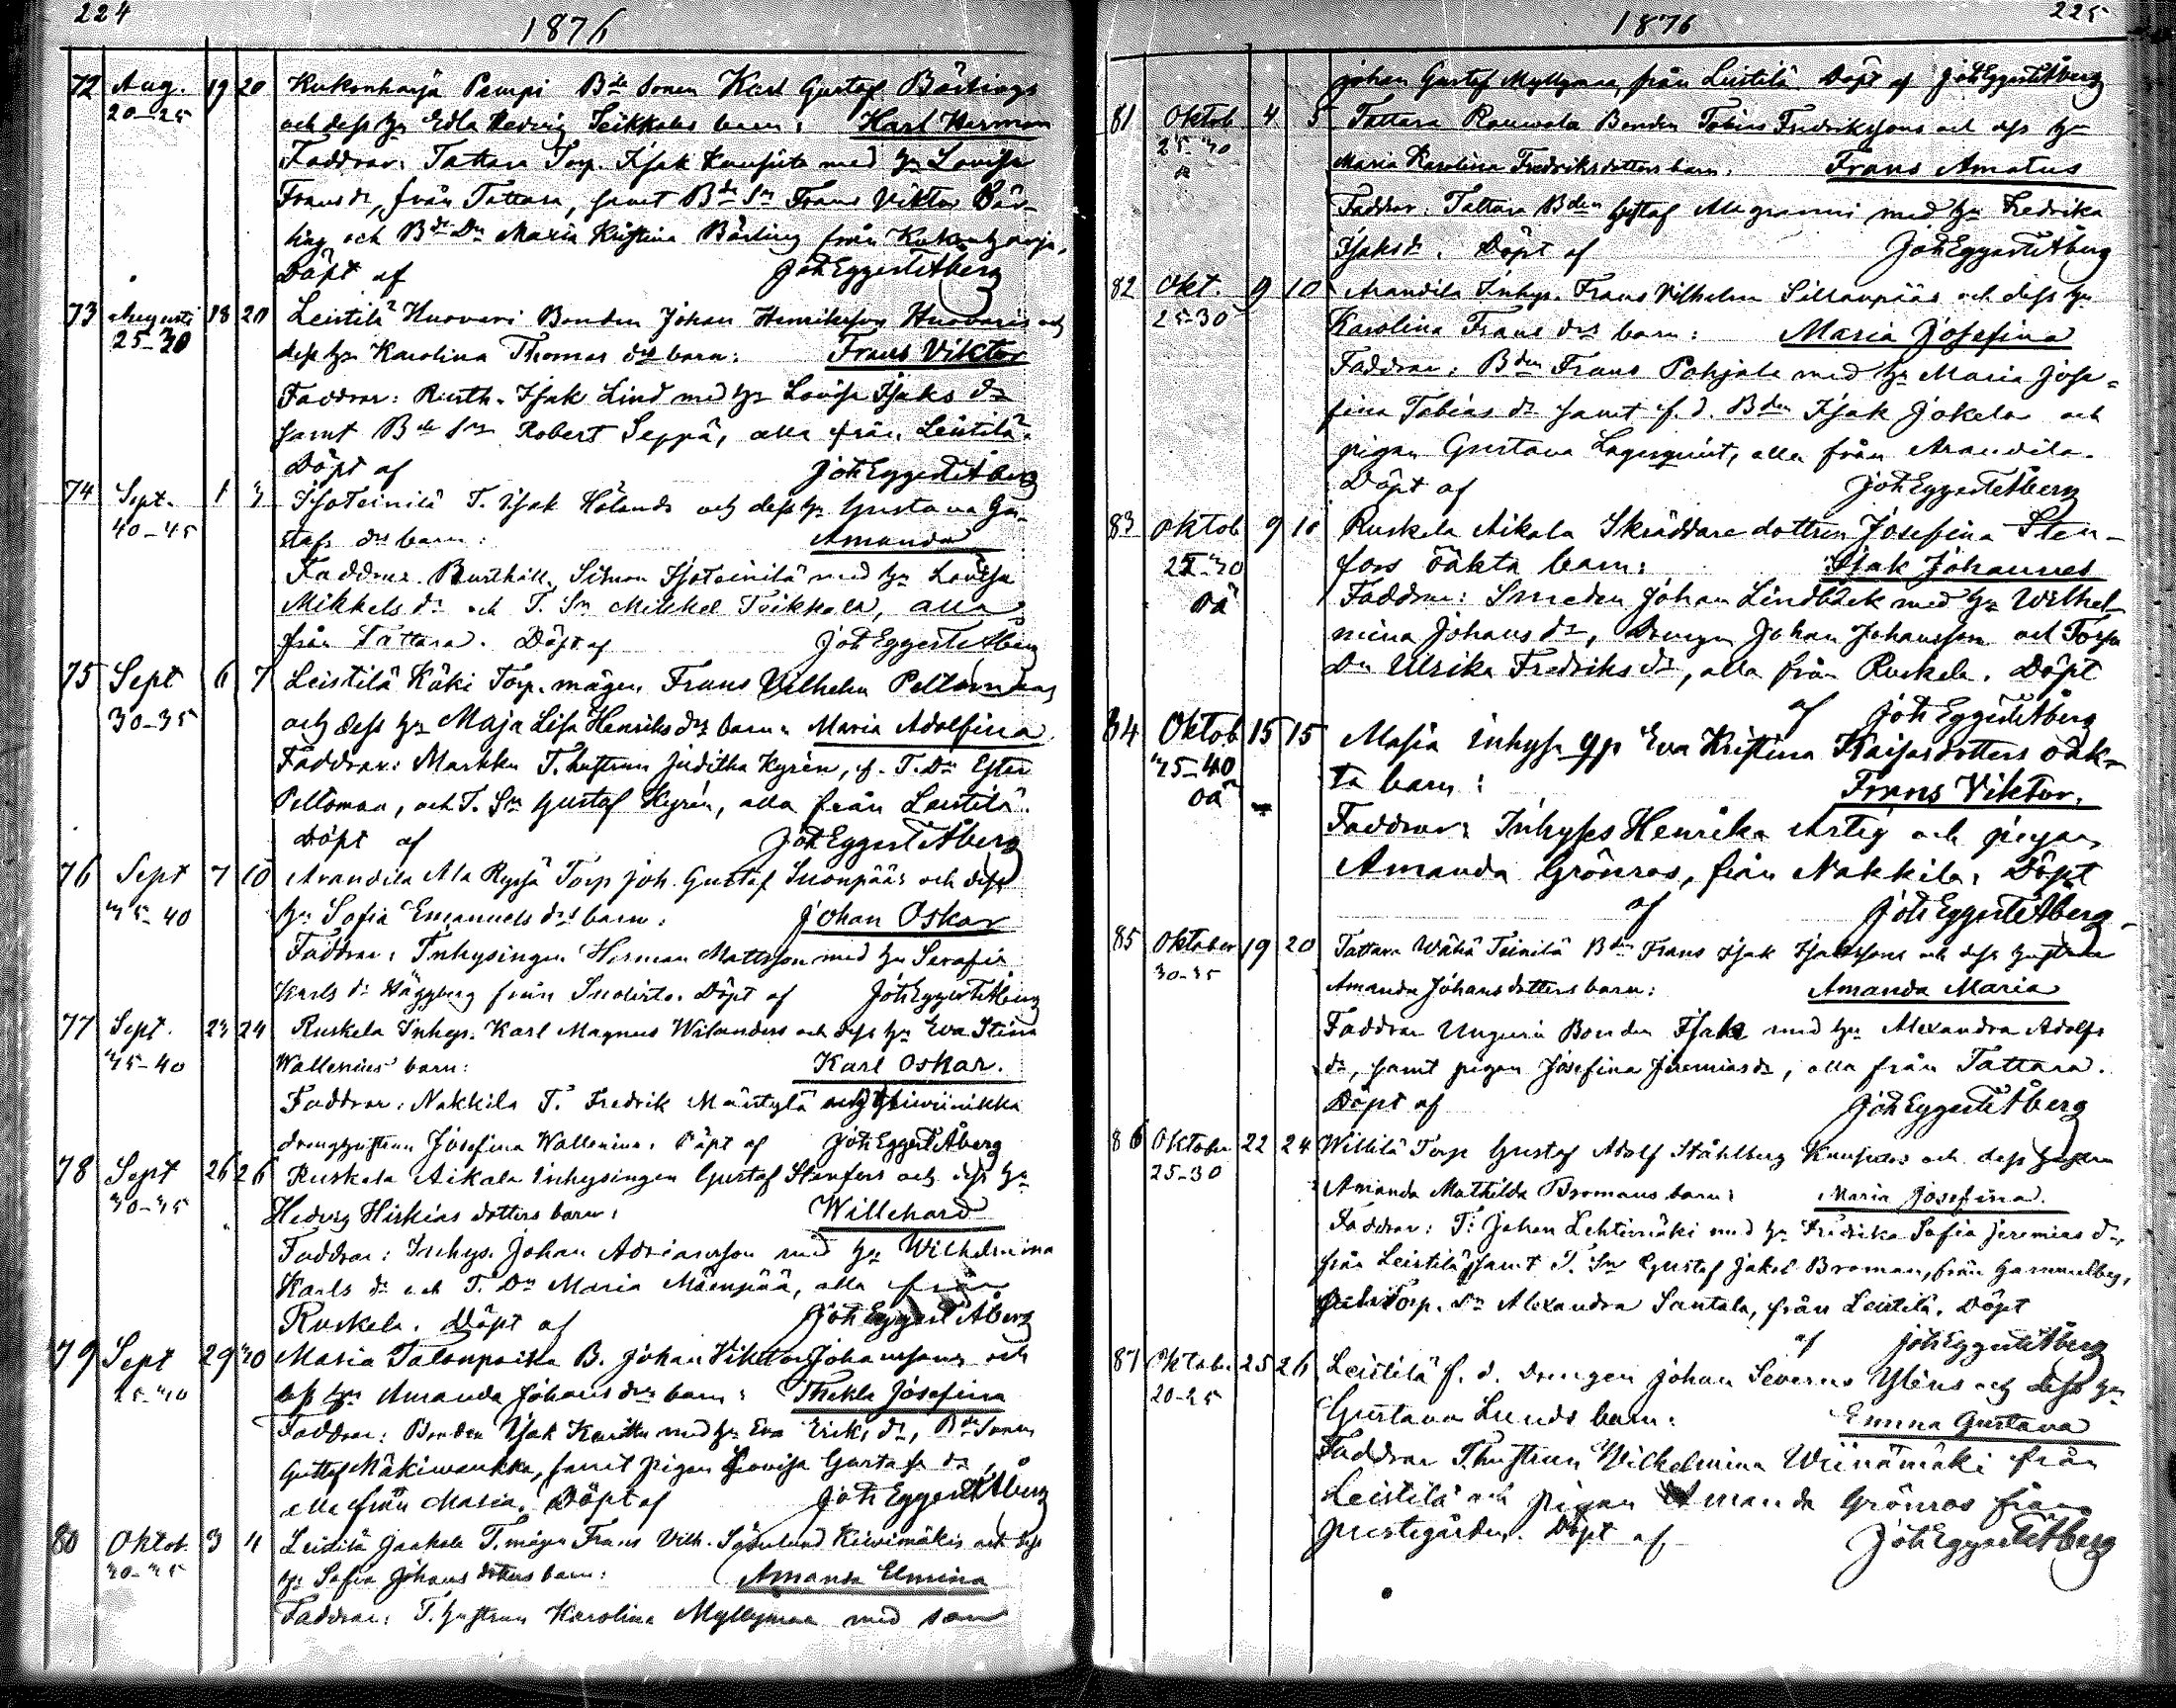 224
1876
72 Aug. 19 20 Kukonharja Pempi Bde Sonen Karl Gustaf Bärlings
20-25 och dess hu Edla Hedvig Seikkolas barn: Karl Herman
Faddrar: Tattara Torp. Isak Kausiuta med hu Lovisa
Fransdr, från Tattara, samt Bde Sn Frans Viktor Bär-
ling och Bde Dn Maria Kristina Bärling från Kukonharja.
Döpt af Joh Eggert Åberg
73 Augusti 18 20 Leistilä Huovari Bonden Johan Henriksson Huovaris och
25-30 dess hu Karolina Thomas drs barn: Frans Viktor
Faddrar: Rusth. Isak Lind med hu Lovisa Isaks dr
samt Bde Sn Robert Seppä, alla från Leistilä.
Döpt af Joh Eggert Åberg
74 Sept. 1 3 Isoteinilä T. Isak Hölands och dess hu Gustava Gu-
40-45 stafs drs barn: Amanda
Faddrar. Rusthåll. Simon Isoteinilä med hu Lovisa
Mikkels dr och T. Sn Mikkel Toikkola, alla
från Tattara. Döpt af Joh Eggert Åberg
75 Sept 6 7 Leistilä Käki Torp. mågen Frans Vilhelm Peltomaas
30-35 och dess hu Maja Lisa Henriks drs barn: Maria Adolfina
Faddrar: Markku T. hustrun Juditha Kyrén, f. T. Dn Ester
Peltomaa, och T. Sn Gustaf Kyrén, alla från Leistilä.
Döpt af Joh Eggert Åberg
76 Sept 7 10 Arandila Ala Ryssä Torp Joh. Gustaf Suonpääs och dess
35-40 hu Sofia Emanuels drs barn: Johan Oskar
Faddrar: Inhysingen Herman Mattsson med hu Serafia
Karls dr Häggberg från Suoliste. Döpt af Joh Eggert Åberg
77 Sept. 23 24 Ruskela Inhys. Karl Magnus Wilanders och dess hu Eva Stina
35-40 Wallenius barn: Karl Oskar.
Faddrar: Nakkila T. Fredrik Mäntylä och
drenghustrun Josefina Wallenius. Döpt af Joh Eggert Åberg
78 Sept 26 26 Ruskela Aikala Inhysingen Gustaf Stenfors och dess hu
30-35 Hedvig Hiskias dotters barn: Willehard
Faddrar: Inhys. Johan Adriansson med hu Wilhelmina
Karls dr och T. Dn Maria Mäenpää, alla från
Ruskela. Döpt af Joh Eggert Åberg
79 Sept 29 30 Masia Talonpoika B. Johan Viktor Johanssons och
25-30 dess hu Amanda Johans drs barn: Thekla Josefina
Faddrar: Bonden Isak Karttu med hu Eva Eriks dr, Bde Sonen
Gustaf Mäkiwaukka, samt pigan Lovisa Gustafs dr,
alla från Masia. Döpt af Joh Eggert Åberg
80 Oktob. 3 4 Leistilä Jaakola T. mågen Frans Vilh. Söderlund Kiwimäkis och dess
30-35 hu Sofia Johans dotters barn: Amanda Elmina
Faddrar: T. hustrun Karolina Myllymaa med son
1876
225
Johan Gustaf Myllymaa, från Leistilä. Döpt af Joh Eggert Åberg
81 Oktob 4 5 Tattara Rouwala Bonden Tobias Fredrikssons och dess hu
25-30 Maria Karolina Fredriksdotters barn: Frans Amatus
Faddrar: Tattara Bden Gustaf Alagranni med hu Fredrika
Isaksdr. Döpt af Joh Eggert Åberg
82 Okt. 9 10 Arandila Inhys. Frans Vilhelm Sillanpääs och dess hu
25-30 Karolina Frans drs barn: Maria Josefina
Faddrar: Bden Frans Pohjala med hu Maria Jose-
fina Tobias dr samt f.d. Bden Isak Jokela och
pigan Gustava Lagerqvist, alla från Arandila.
Döpt af Joh Eggert Åberg
83 Oktob 9 10 Ruskela Aikala Skräddare dottren Josefina Sten-
25-30 fors oäkta barn: Isak Johannes
oä Faddrar: Smeden Johan Lindbäck med hu Wilhel-
mina Johans dr, Drengen Johan Johansson och Torp
Dn Ulrika Fredriks dr, alla från Ruskela. Döpt
af Joh Eggert Åberg
84 Oktob 15 15 Masia inhyse qp Eva Kristina Kaisasdotters oäk-
35-40 ta barn: Frans Viktor.
oä Faddrar: Inhyses Henrika Artig och pigan
Amanda Grönros, från Nakkila. Döpt
af Joh Eggert Åberg
85 Oktober 19 20 Tattara Wähä Teinilä Bden Frans Isak Isakssons och dess hustru
30-35 Amanda Johansdotters barn: Amanda Maria
Faddrar Unguri Bonden Isak med hu Alexandra Adolfs
dr, samt pigan Josefina Jeremiasdr, alla från Tattara.
Döpt af Joh Eggert Åberg
86 Oktober 22 24 Willilä Torp Gustaf Adolf Ståhlberg och dess hustru
25-30 Amanda Mathilda Bromans barn: Maria Josefina.
Faddrar: T. Johan Lehtimäki med hu Fredrika Sofia Jeremias dr,
från Leistilä, samt T. Sn Gustaf Jakob Broman, från Gammelby,
Torp. Dn Alexandra Santala, från Leistilä. Döpt
af Joh Eggert Åberg
87 Oktober 25 26 Leistilä f. d. Drengen Johan Severus Yléns och dess hu
20-25 Gustava Lunds barn: Emma Gustava
Faddrar T. hustrun Wilhelmina Wiinämäki från
Leistilä och pigan Amanda Grönros från
prestegården. Döpt af Joh Eggert Åberg